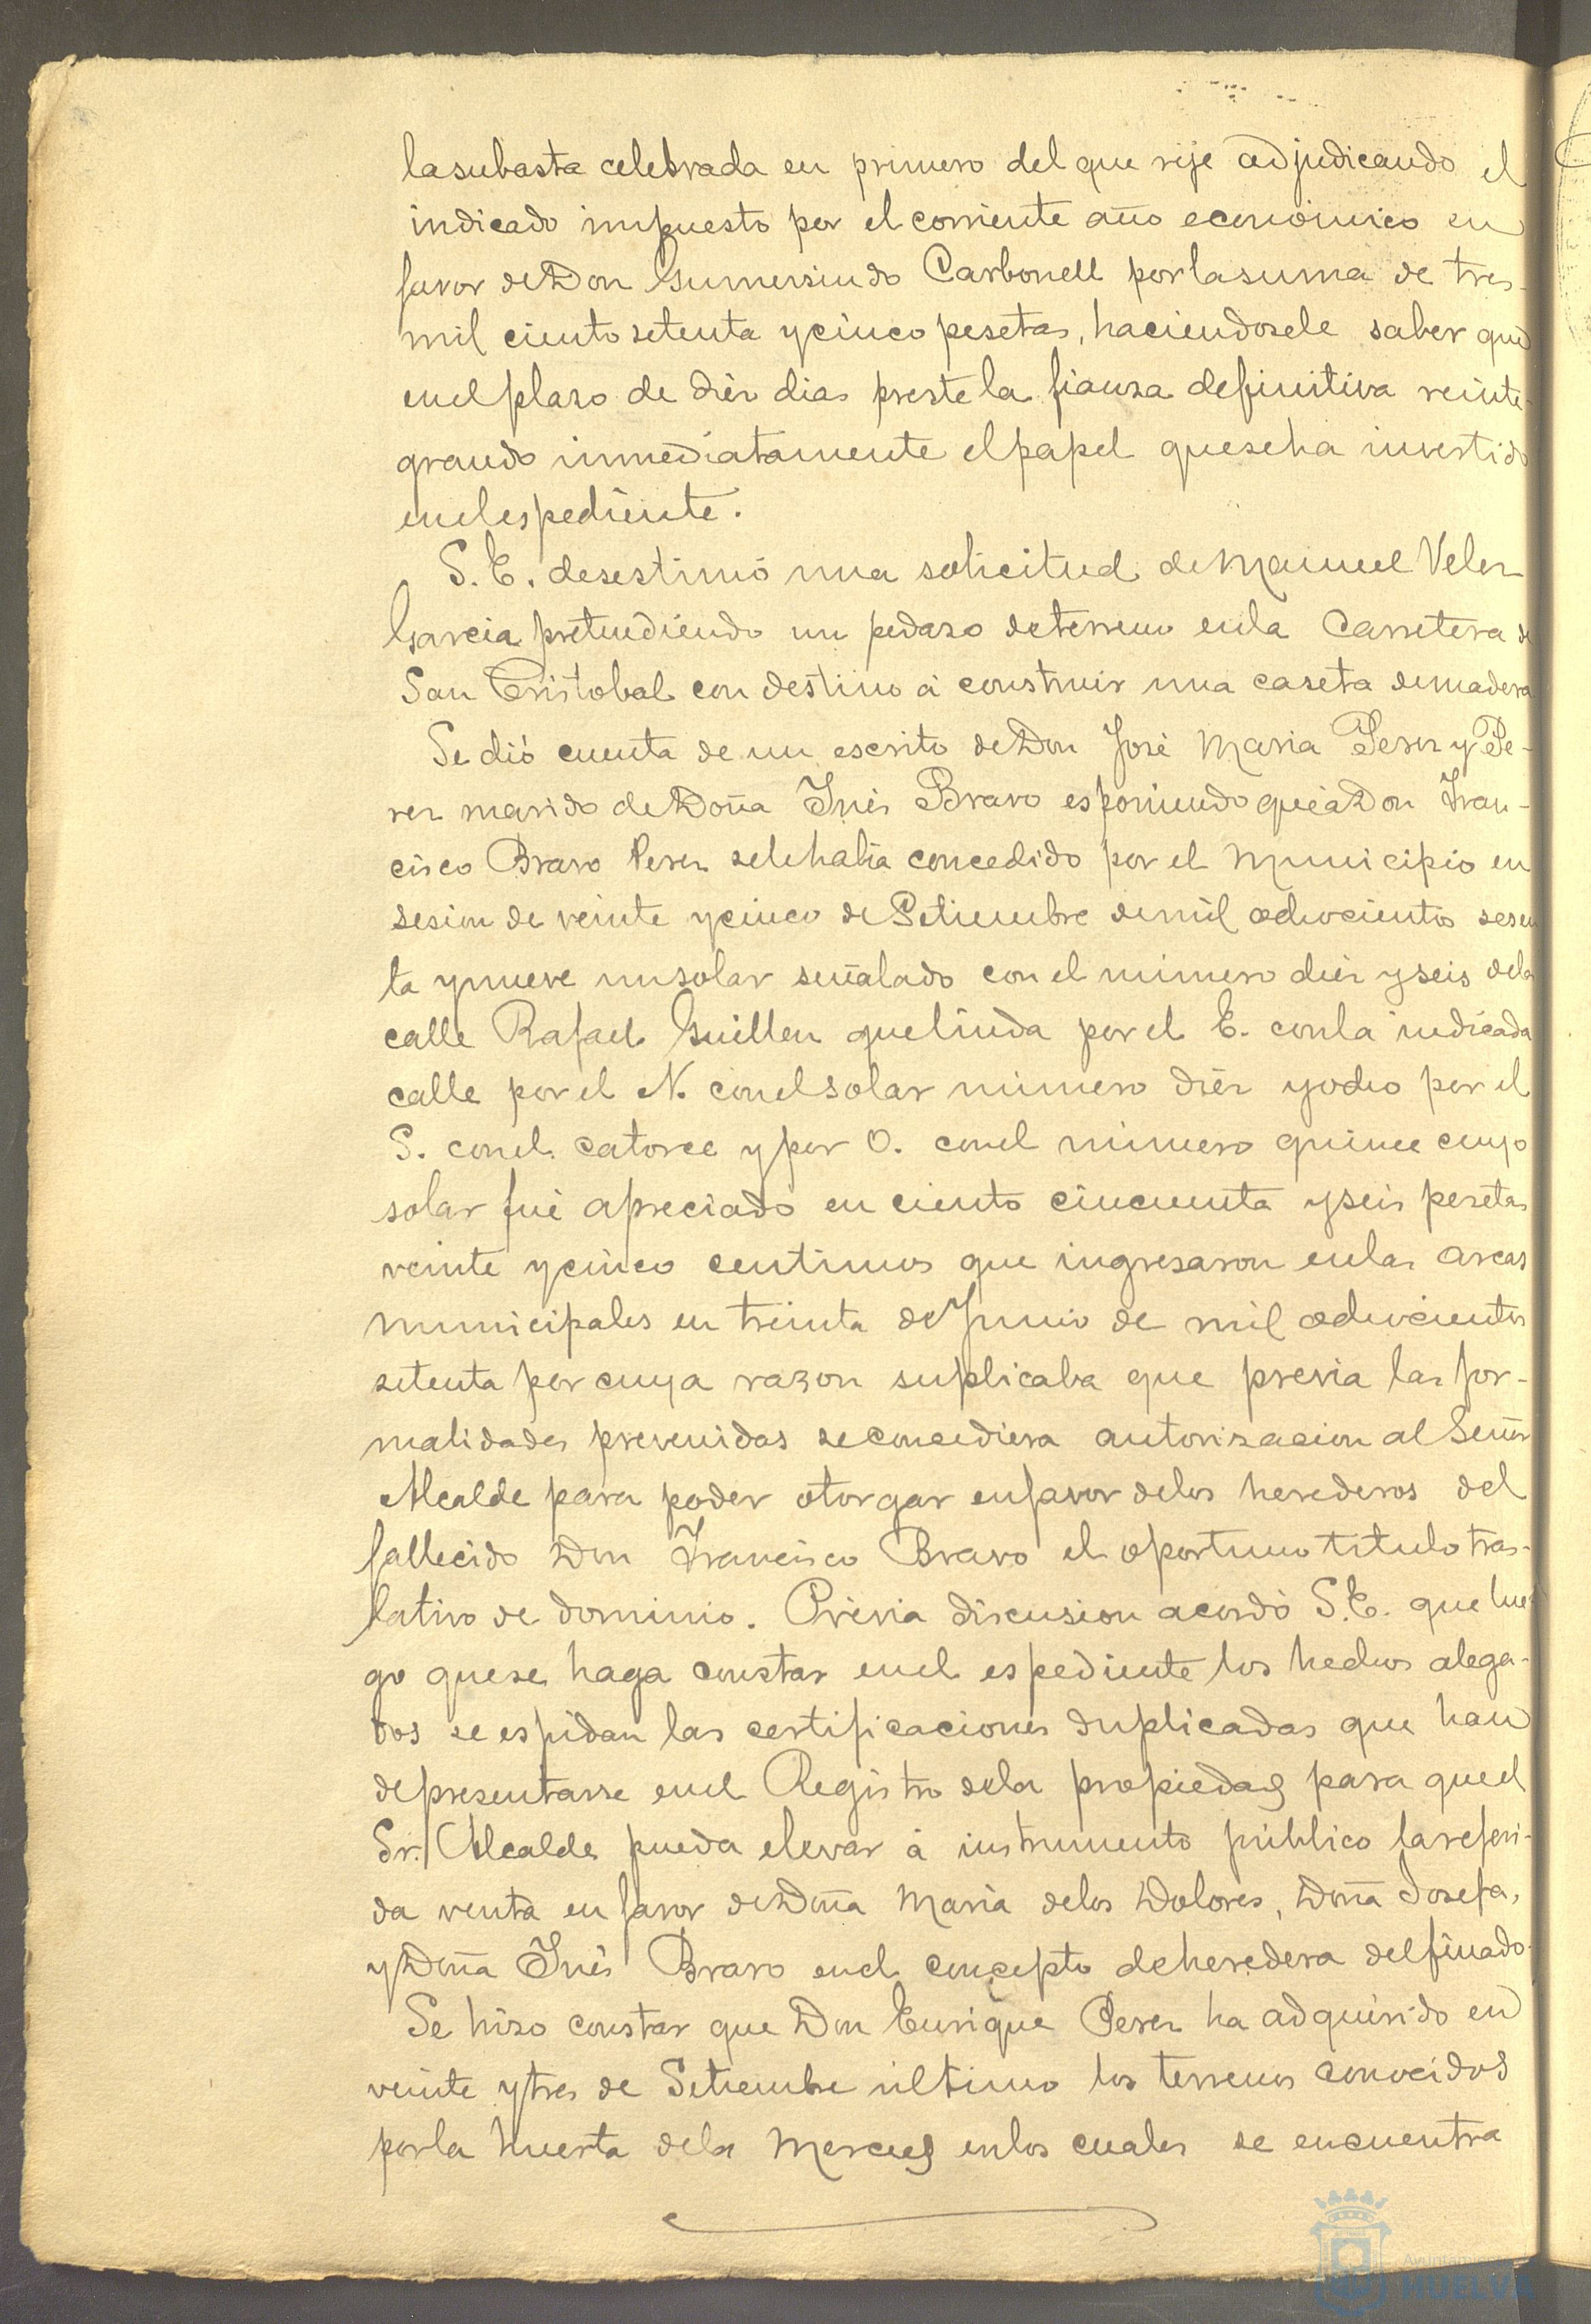 la subasta celebrada en primero del que rije adjudicando el
indicado impuesto por el corriente año económico en
favor de Don Gumersindo Carbonell por la suma de tres
mil ciento setenta y cinco pesetas, haciendosele saber que
en el plazo de diéz dias preste la fianza definitiva reinte-
grando inmediatamente el papel que se ha invertido
en el espediente.
S. E. desestimó una solicitud de Manuel Velez
Garcia pretendiendo un pedazo de terreno en la Carretera de
San Cristobal con destino á construir una caseta de madera
Se dió cuenta de un escrito de Don José Maria Perez y Pe-
rez marido de Doña Inés Bravo esponiendo que á Don Fran-
cisco Bravo Perez se le habia concedido por el Municipio en
sesion de veinte y cinco de Setiembre de mil ochocientos sesen
ta y nueve un solar señalado con el número diéz y seis de la
calle Rafael Guillen que linda por el E. con la indicada
calle por el N. con el solar número diéz y ocho por el
S. con el catorce y por O. con el número quince cuyo
solar fué apreciado en ciento cincuenta y seis pesetas
veinte y cinco centimos que ingresaron en las arcas
municipales en treinta de Junio de mil ochocientos
setenta por cuya razon suplicaba que previa las for-
malidades prevenidas se concediera autorizacion al Señor
Alcalde para poder otorgar en favor de los herederos del
fallecido Don Francisco Bravo el oportuno titulo tras-
lativo de dominio. Prévia discusion acordó S.E. que lue
go que se haga constar en el espediente los hechos alega-
dos se espidan las certificaciones duplicadas que han
de presentarse en el Registro de la propiedad para que el
Sr. Alcalde pueda elevar á instrumento público la referi-
da venta en favor de Doña Maria de los Dolores, Doña Josefa,
y Doña Inés Bravo en el concepto de heredera del finado.
Se hizo constar que Don Enrique Perez ha adquirido en
veinte y tres de Setiembre último los terrenos conocidos
por la huerta de la Merced en los cuales se encuentra
Ayuntam
HUELVA